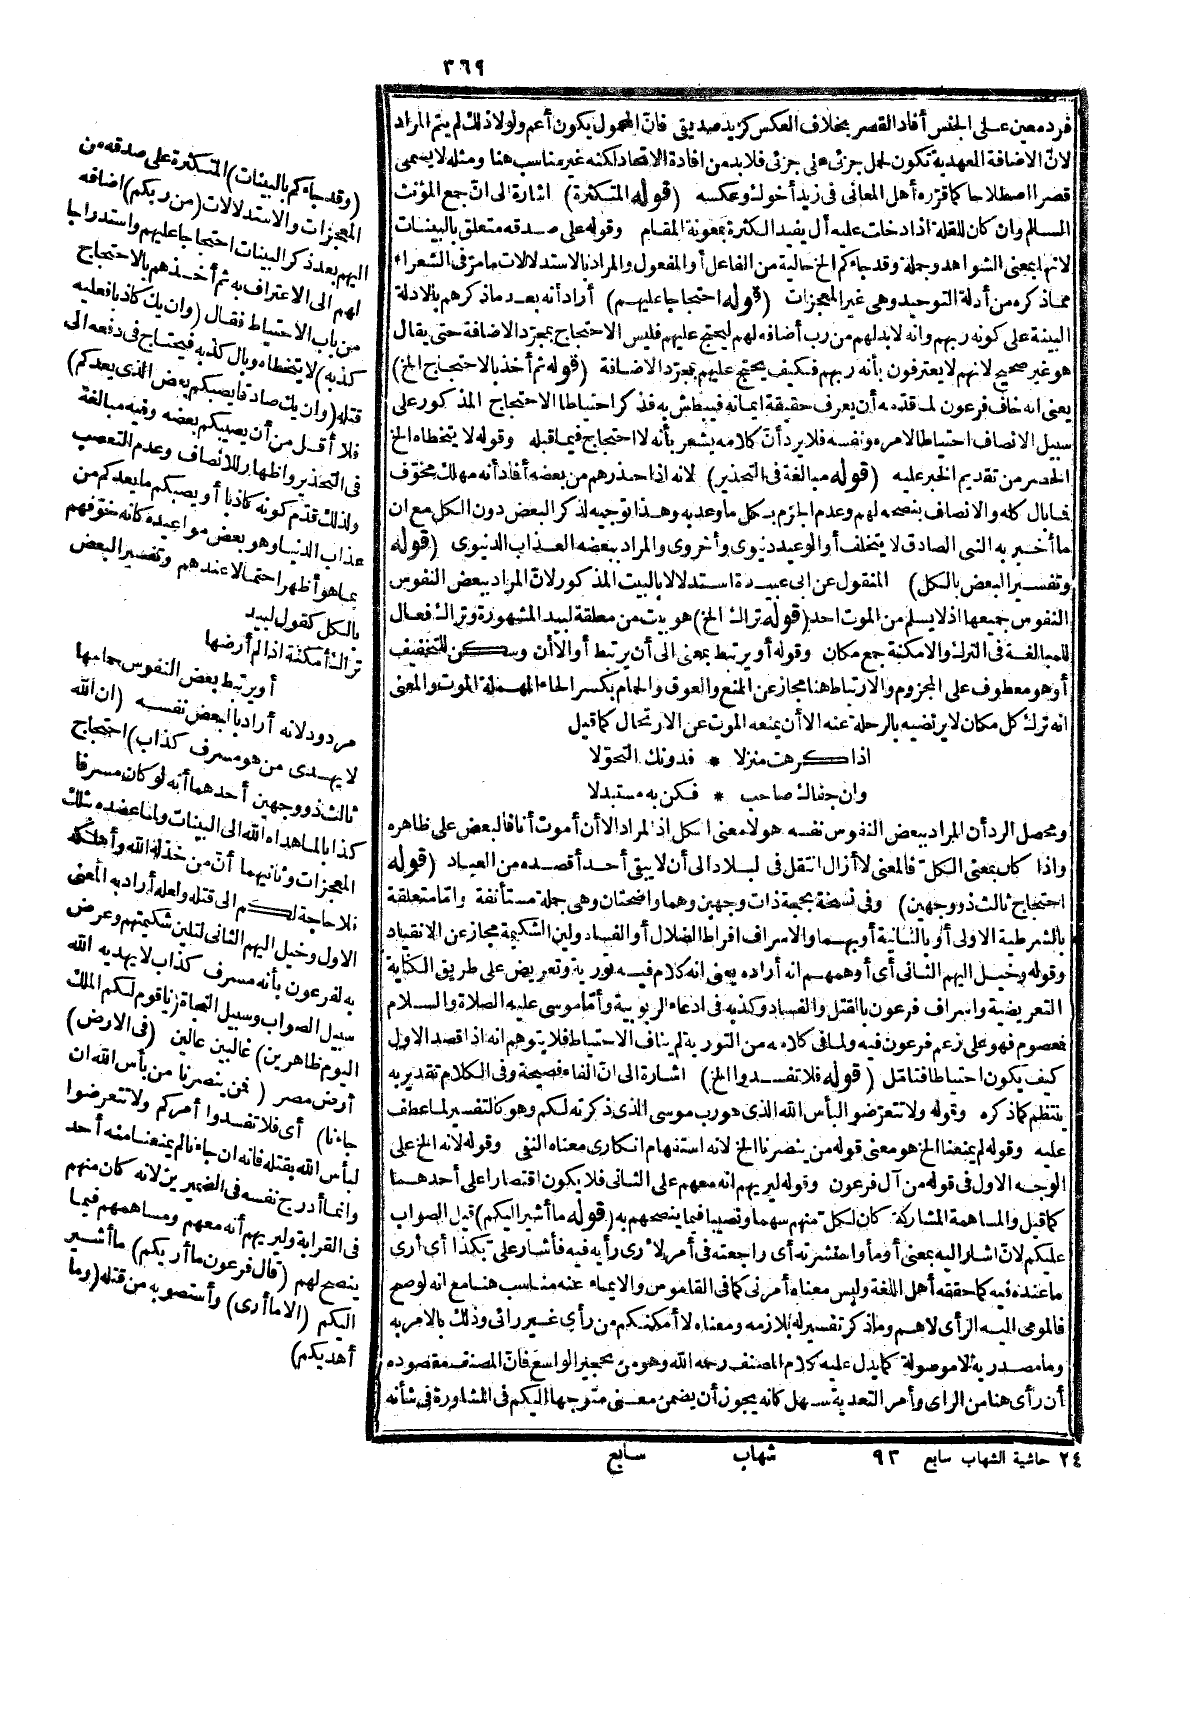 ٣٦٩
فرد معين على الجنس أفاد القصر بخلاف العكس كزيد صديقي فان المحمول يكون أعم ولولا ذلك لم يتم المراد
لان الاضافة العهدية تكون لحمل جزئى على جزئى فلا بد من افادة الاتحاد لكنه غير مناسب هنا ومثله لا يسمى
قصرا اصطلاحا كما قرره أهل المعانى فى زيد أخوك وعكسه (قوله المتكثرة) اشارة الى ان جمع المؤنث
السالم وان كان للقلة اذا دخلت عليه أل يفيد الكثرة بمعونة المقام وقوله على صدقه متعلق بالبينات
لانها بمعنى الشواهد وجملة وقد جاءكم الخ حالية من الفاعل أو المفعول والمراد بالاستدلالات ما مر فى الشعراء
مما ذكره من أدلة التوحيد وهى غير المعجزات (قوله احتجاجا عليهم) أراد أنه بعد ما ذكرهم بالادلة
البينة على كونه ربهم وانه لا بد لهم من رب أضافه لهم ليحتج عليهم فليس الاحتجاج بمجرد الاضافة حتى يقال
هو غير صحيح لانهم لا يعترفون بأنه ربهم فكيف يحتج عليهم بمجرد الاضافة (قوله ثم أخذ بالاحتجاج الخ)
يعنى انه خاف فرعون لما قدمه أن يعرف حقيقة ايمانه فيبطش به فذكر احتياطا الاحتجاج المذكور على
سبيل الانصاف احتياطا لامره ونفسه فلا يرد أن كلامه يشعر بأنه لا احتجاج فيما قبله وقوله لا يتخطاه الخ
الحصر من تقديم الخبر عليه (قوله مبالغة فى التحذير) لانه اذا حذرهم من بعضه أفاد أنه مهلك مخوف
فما بال كله والانصاف بنصحه لهم وعدم الجزم بكل ما وعد به وهذا توجيه لذكر البعض دون الكل مع ان
ما أخبر به النبى الصادق لا يتخلف أو الوعيد دنيوى وأخروى والمراد ببعضه العذاب الدنيوى (قوله
وتفسير البعض بالكل) المنقول عن ابى عبيدة استدلالا بالبيت المذكور لان المراد ببعض النفوس
النفوس جميعها اذ لا يسلم من الموت احد (قوله تراك الخ) هو بيت من معلقة لبيد المشهورة وتراك فعال
للمبالغة فى الترك والامكنة جمع مكان وقوله أو يرتبط بمعنى الى أن يرتبط أو الا أن وسكن للتخفيف
أو هو معطوف على المجزوم والارتباط هنا مجاز عن المنع والعوق والحمام بكسر الحاء المهملة الموت والمعنى
انه ترك كل مكان لا يرتضيه بالرحلة عنه الا أن يمنعه الموت عن الارتحال كما قيل
اذا كرهت منزلا * فدونك التحولا
وان جفاك صاحب * فكن به مستبدلا
ومحصل الرد أن المراد ببعض النفوس نفسه هو لا معنى الكل اذ المراد الا أن أموت أنا فالبعض على ظاهره
واذا كان بمعنى الكل فالمعنى لا أزال انتقل فى البلاد الى أن لا يبقى أحد أقصده من العباد (قوله
احتجاج ثالث ذو وجهين) وفى نسخة بحجة ذات وجهين وهما واضحتان وهى جملة مستأنفة واما متعلقة
بالشرطية الاولى أو بالثانية أو بهما والاسراف افراط الضلال أو الفساد ولين الشكيمة مجاز عن الانقياد
وقوله وخيل اليهم الثانى أى أوهمهم انه أراده يعنى انه كلام فيه تورية وتعريض على طريق الكناية
التعريضية واسراف فرعون بالقتل والفساد وكذبه فى ادعاء الربوبية وأما موسى عليه الصلاة والسلام
فمعصوم فهو على زعم فرعون فيه ولما فى كلامه من التورية لم يناف الاحتياط فلا يتوهم انه اذا قصد الاول
كيف يكون احتياطا فتامل (قوله فلا تفسدوا الخ) اشارة الى ان الفاء فصيحة وفى الكلام تقدير به
ينتظم كما ذكره وقوله ولا تتعرضوا لبأس الله الذى هو رب موسى الذى ذكرته لكم وهو كالتفسير لما عطف
عليه وقوله لم يمنعنا الخ هو معنى قوله من ينصرنا الخ لانه استفهام انكارى معناه النفى وقوله لانه الخ على
الوجه الاول فى قوله من آل فرعون وقوله ليريهم انه معهم على الثانى فلا يكون اقتصارا على أحدهما
كما قيل والمساهمة المشاركة كان لكل منهم سهما ونصيبا فيما ينصحهم به (قوله ما أشير اليكم) قيل الصواب
عليكم لان اشار اليه بمعنى أومأ واستشرته أى راجعته فى أمر لأرى رأيه فيه فأشار على بكذا أى أرى
ما عنده فيه كما حققه أهل اللغة وليس معناه أمرنى كما فى القاموس والايماء عنه مناسب هنا مع انه لو صح
فالمومى اليه الرأى لاهم وما ذكر تفسير له بلازمه ومعناه لا أمكنكم من رأى غير رائى وذلك بالامر به
وما مصدرية لا موصولة كما يدل عليه كلام المصنف رحمه الله وهو من تحجير الواسع فان المصنف مقصوده
أن رأى هنا من الراى وأمر التعدية سهل كانه يجوز أن يضمن معنى متوجها اليكم فى المشاورة فى شأنه
٢٤ حاشية الشهاب سابع ٩٣ شهاب سابع
(وقد جاءكم بالبينات) المتكثرة على صدقه من
المعجزات والاستدلالات (من ربكم) اضافه
اليهم بعد ذكر البينات احتجاجا عليهم واستدراجا
لهم الى الاعتراف به ثم أخذهم بالاحتجاج
من باب الاحتياط فقال (وان يك كاذبا فعليه
كذبه) لا يتخطاه وبال كذبه فيحتاج فى دفعه الى
قتله (وان يك صادقا يصبكم بعض الذى يعدكم)
فلا أقل من أن يصيبكم بعضه وفيه مبالغة
فى التحذير واظهار للانصاف وعدم التعصب
ولذلك قدم كونه كاذبا أو يصبكم ما يعدكم من
عذاب الدنيا وهو بعض مواعيده كانه خوفهم
بما هو أظهر احتمالا عندهم وتفسير البعض
بالكل كقول لبيد
تراك أمكنة اذا لم أرضها
أو يرتبط بعض النفوس حمامها
مردود لانه أراد بالبعض نفسه (ان الله
لا يهدى من هو مسرف كذاب) احتجاج
ثالث ذو وجهين أحدهما أنه لو كان مسرفا
كذابا لما هداه الله الى البينات ولما عضده بتلك
المعجزات وثانيهما أن من خذله الله وأهلكه
فلا حاجة لكم الى قتله ولعله أراد به المعنى
الاول وخيل اليهم الثانى لتلين شكيمتهم وعرض
به لفرعون بأنه مسرف كذاب لا يهديه الله
سبيل الصواب وسبيل النجاة (يا قوم لكم الملك
اليوم ظاهرين) غالبين عالين (فى الارض)
أرض مصر (فمن ينصرنا من بأس الله ان
جاءنا) أى فلا تفسدوا أمركم ولا تتعرضوا
لبأس الله بقتله فانه ان جاءنا لم يمنعنا منه أحد
وانما أدرج نفسه فى الضميرين لانه كان منهم
فى القرابة وليريهم أنه معهم ومساهمهم فيما
ينصح لهم (قال فرعون ما أريكم) ما أشير
اليكم (الا ما أرى) وأستصوبه من قتله (وما
أهديكم)